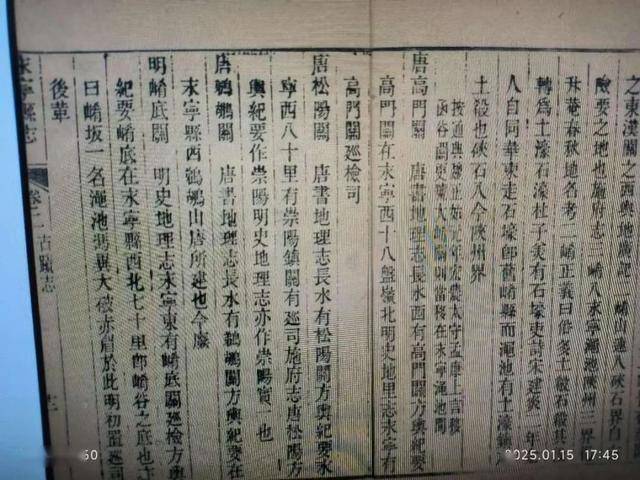 之東漢關之西輿地廣記二崤山連入硤石界自
險要之地也施府志三崤入永寧澠池陝州三界
升菴春秋地名考二崤正義曰俗名土殽石殽其
轉為土濠石濠杜子美有石壕吏詩宋建炎二年
人自同華東走石壕即舊崤縣而澠池有土濠鎮
土殽也硤石入今陝州界
按通典魏正始元年宏農太守孟康上言移
函谷關更號大崤關則當移在永寧澠池間
唐高門關 唐書地理志長水西有高門關方輿紀要
高門關在永寧西十八盤嶺北明史地里志永寧有
高門關巡檢司
唐松陽關 唐書地理志長水有松陽關方輿紀要永
寧西八十里有崇陽鎮關有巡司施府志唐松陽方
輿紀要作崇陽明史地理志亦作崇陽實一也
唐鵜鶘關 唐書地理志長水有鵜鶘關方輿紀要在
永寧縣西鵜鶘山唐所建也今廢
明崤底關 明史地理志永寧東有崤底關巡檢方輿
紀要崤底在永寧縣西北七十里即崤谷之底也亦
曰崤坂一名澠池馮異大破赤眉於此明初置巡司
後革
永寧縣志
卷二 古蹟志
十二
60
2025.01.15 17:45